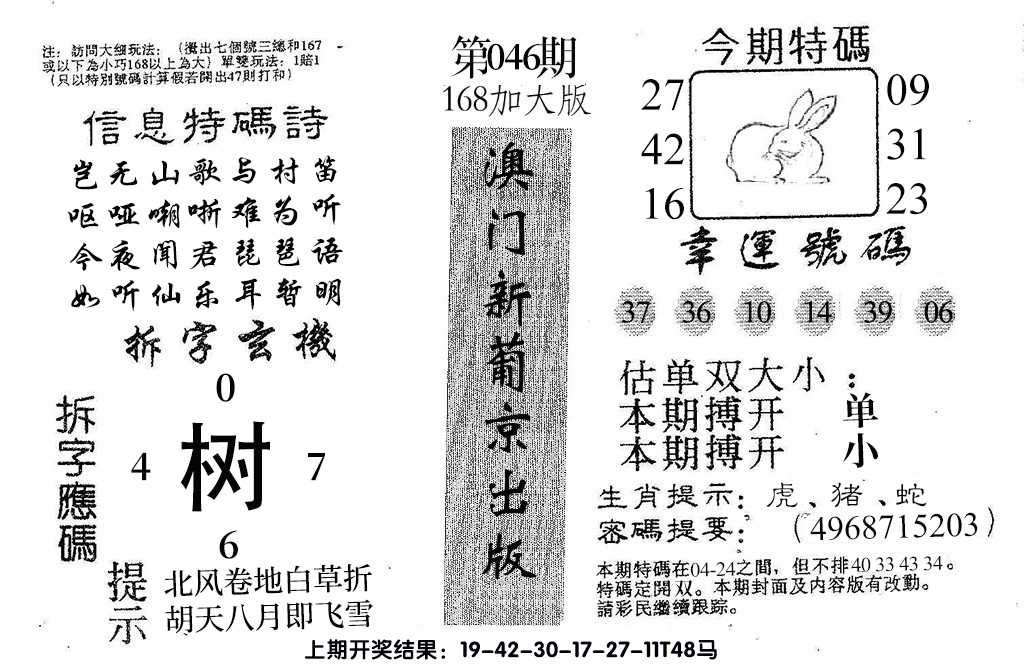 注：訪問大细玩法：（攪出七個號三總和167
或以下為小巧168以上為大）單雙玩法：1賠1
（只以特別號碼計算假若開出47則打和）
信息特碼詩
岂无山歌与村笛
呕哑嘲哳难为听
今夜闻君琵琶语
如听仙乐耳暂明
拆字玄機
拆字應碼
0
4 树 7
6
提示
北风卷地白草折
胡天八月即飞雪
第046期
168加大版
澳门新葡京出版
今期特碼
27 09
42 31
16 23
幸運號碼
37 36 10 14 39 06
估单双大小：
本期搏开 单
本期搏开 小
生肖提示：虎、猪、蛇
密碼提要：（4968715203）
本期特碼在04-24之間，但不排40 33 43 34。
特碼定開双。本期封面及内容版有改動。
請彩民繼續跟踪。
上期开奖结果：19-42-30-17-27-11T48马